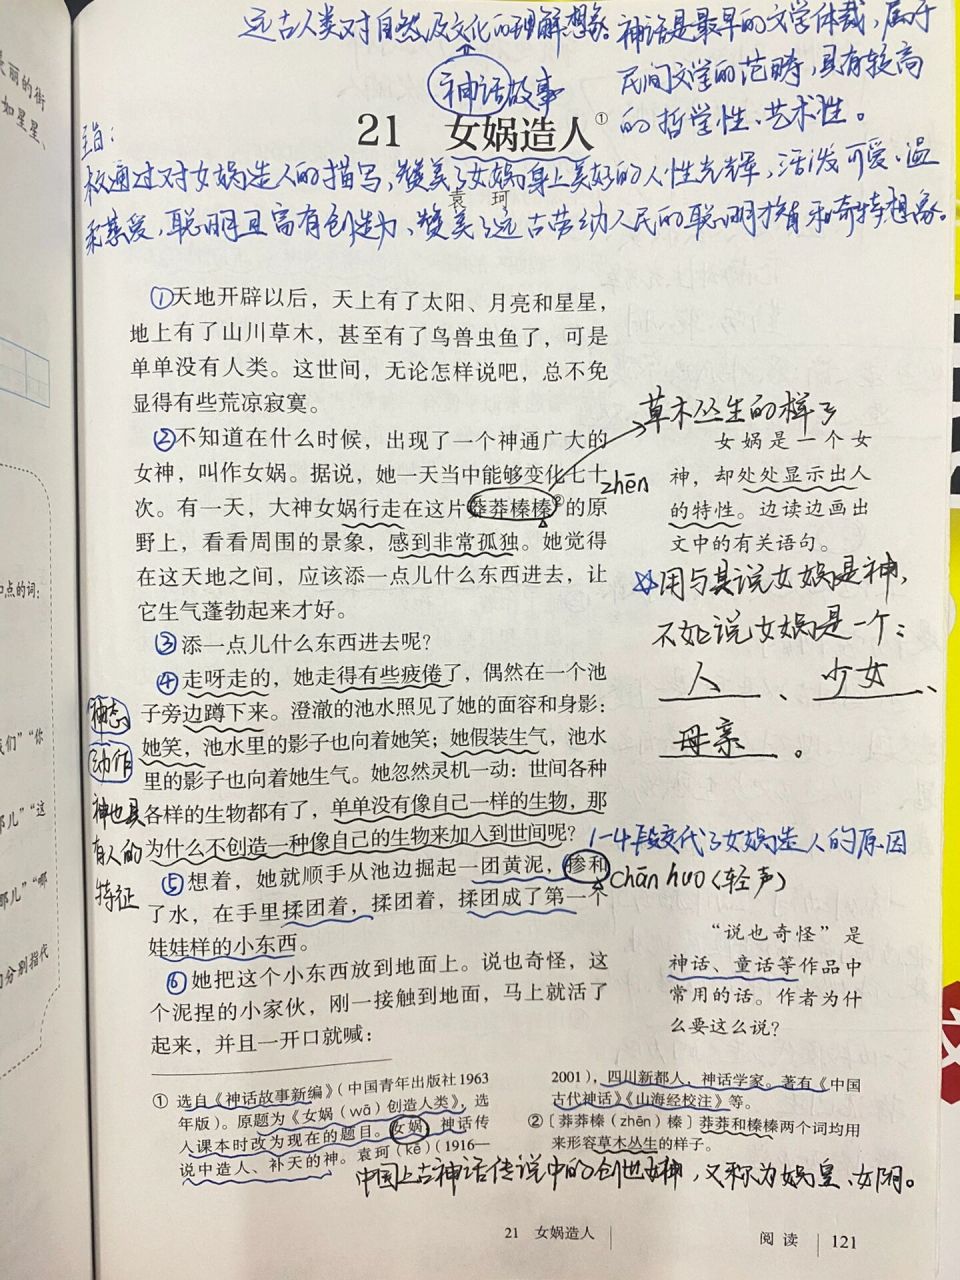 远古人类对自然及文化的理解想象。神话是最早的文学体裁，属于
民间文学的范畴，具有较高
的哲学性、艺术性。
神话故事
21 女娲造人①
主旨：
通过对女娲造人的描写，赞美了女娲身上美好的人性光辉，活泼可爱、温
和慈爱，聪明且富有创造力、赞美了远古劳动人民的聪明才智和奇特想象。
袁珂
①天地开辟以后，天上有了太阳、月亮和星星，
地上有了山川草木，甚至有了鸟兽虫鱼了，可是
单单没有人类。这世间，无论怎样说吧，总不免
显得有些荒凉寂寞。
②不知道在什么时候，出现了一个神通广大的
女神，叫作女娲。据说，她一天当中能够变化七十
次。有一天，大神女娲行走在这片莽莽榛榛②的原
野上，看看周围的景象，感到非常孤独。她觉得
在这天地之间，应该添一点儿什么东西进去，让
它生气蓬勃起来才好。
③添一点儿什么东西进去呢？
④走呀走的，她走得有些疲倦了，偶然在一个池
子旁边蹲下来。澄澈的池水照见了她的面容和身影：
她笑，池水里的影子也向着她笑；她假装生气，池水
里的影子也向着她生气。她忽然灵机一动：世间各种
各样的生物都有了，单单没有像自己一样的生物，那
为什么不创造一种像自己的生物来加入到世间呢？
⑤想着，她就顺手从池边掘起一团黄泥，掺和
了水，在手里揉团着，揉团着，揉团成了第一个
娃娃样的小东西。
⑥她把这个小东西放到地面上。说也奇怪，这
个泥捏的小家伙，刚一接触到地面，马上就活了
起来，并且一开口就喊：
草木丛生的样子
zhēn
女娲是一个女
神，却处处显示出人
的特性。边读边画出
文中的有关语句。
用与其说女娲是神，
不如说女娲是一个：
人、少女、
母亲。
神态
动作
神也具
有人的
特征
1-4段交代了女娲造人的原因
chān huo（轻声）
“说也奇怪”是
神话、童话等作品中
常用的话。作者为什
么要这么说？
① 选自《神话故事新编》（中国青年出版社1963
年版）。原题为《女娲（wā）创造人类》，选
入课本时改为现在的题目。女娲，神话传
说中造人、补天的神。袁珂（kē）（1916—
2001），四川新都人，神话学家。著有《中国
古代神话》《山海经校注》等。
②〔莽莽榛（zhēn）榛〕莽莽和榛榛两个词均用
来形容草木丛生的样子。
中国上古神话传说中的创世女神，又称为娲皇、女阴。
21 女娲造人
阅读 121
丽的街
如星星、
点的词：
们”“你
那儿”“这
那儿”“哪
分别指代